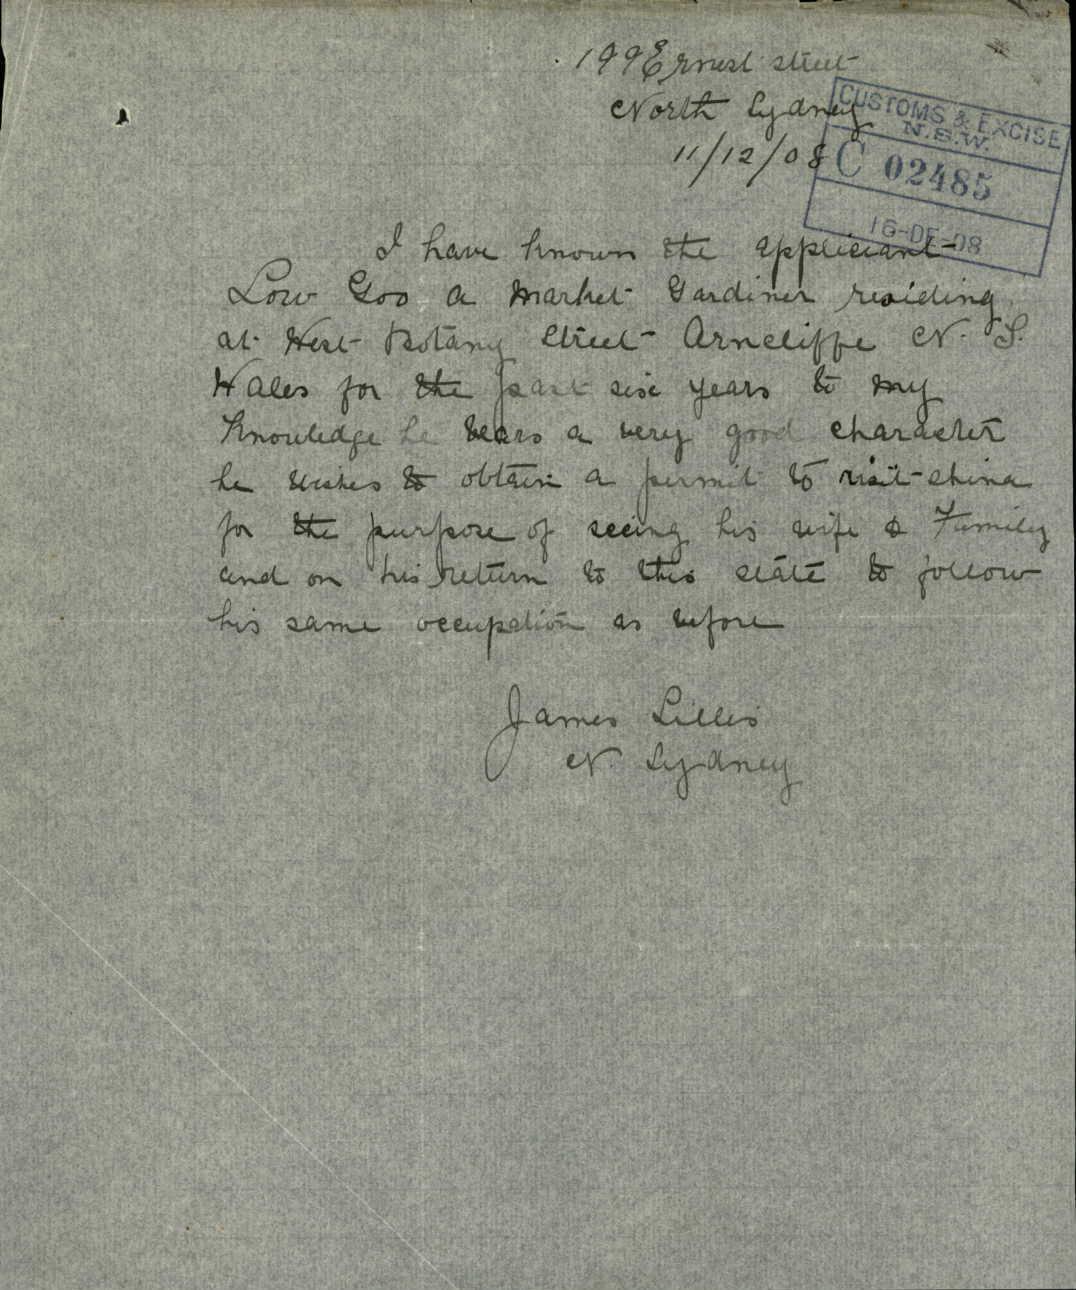 199 Ernest street
North Sydney
11/12/08
CUSTOMS & EXCISE
N.S.W.
C 02485
16-DE-08
I have known the appliciant
Low Goo a market Gardiner residing
at West Botany Street Arncliffe N. S.
Wales for the past six years to my
knowledge he bears a very good character
he wishes to obtain a permit to visit china
for the purpose of seeing his wife & Family
and on his return to this state to follow
his same occupation as before
James Lillis
N Sydney